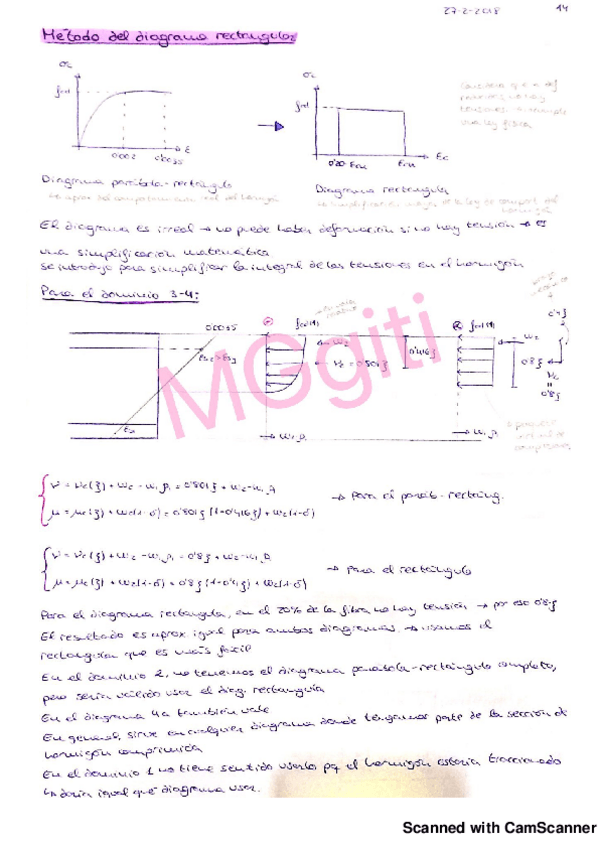 27-2-2018
14
Método del diagrama rectangular
σc
fcd
0'002
0'0035
ε
σc
fcd
0'20·εcu
εcu
εc
Diagrama parábola-rectángulo
Diagrama rectangular
El diagrama es irreal → no puede haber deformación si no hay tensión → es
una simplificación matemática
se introdujo para simplificar la integral de las tensiones en el hormigón
Para el dominio 3-4:
0'0035
fcd(1)
ω2
νc = 0'801ξ
0'416ξ
ω1 β1
fcd(1)
ω2
0'8ξ
0'4ξ
νc
=
0'8ξ
ω1 β1
ν = νc(ξ) + ω2 - ω1 β1 = 0'801ξ + ω2 - ω1 β1
→ Para el paráb-rectáng.
μ = μc(ξ) + ω2(1-δ) = 0'801ξ(1-0'416ξ) + ω2(1-δ)
ν = νc(ξ) + ω2 - ω1 β1 = 0'8ξ + ω2 - ω1 β1
→ Para el rectángulo
μ = μc(ξ) + ω2(1-δ) = 0'8ξ(1-0'4ξ) + ω2(1-δ)
Para el diagrama rectangular, en el 20% de la fibra no hay tensión → por eso 0'8ξ
El resultado es aprox igual para ambos diagramas. → usamos el
rectangular que es más fácil
En el dominio 2, no tenemos el diagrama parábola-rectángulo completo,
pero sería válido usar el diag. rectangular
En el diagrama 4a también vale
En general, sirve en cualquier diagrama donde tengamos parte de la sección de
hormigón comprimida
En el dominio 1 no tiene sentido usarlo pq el hormigón estaría traccionado
↳ daría igual qué diagrama usar.
MGgiti
Scanned with CamScanner